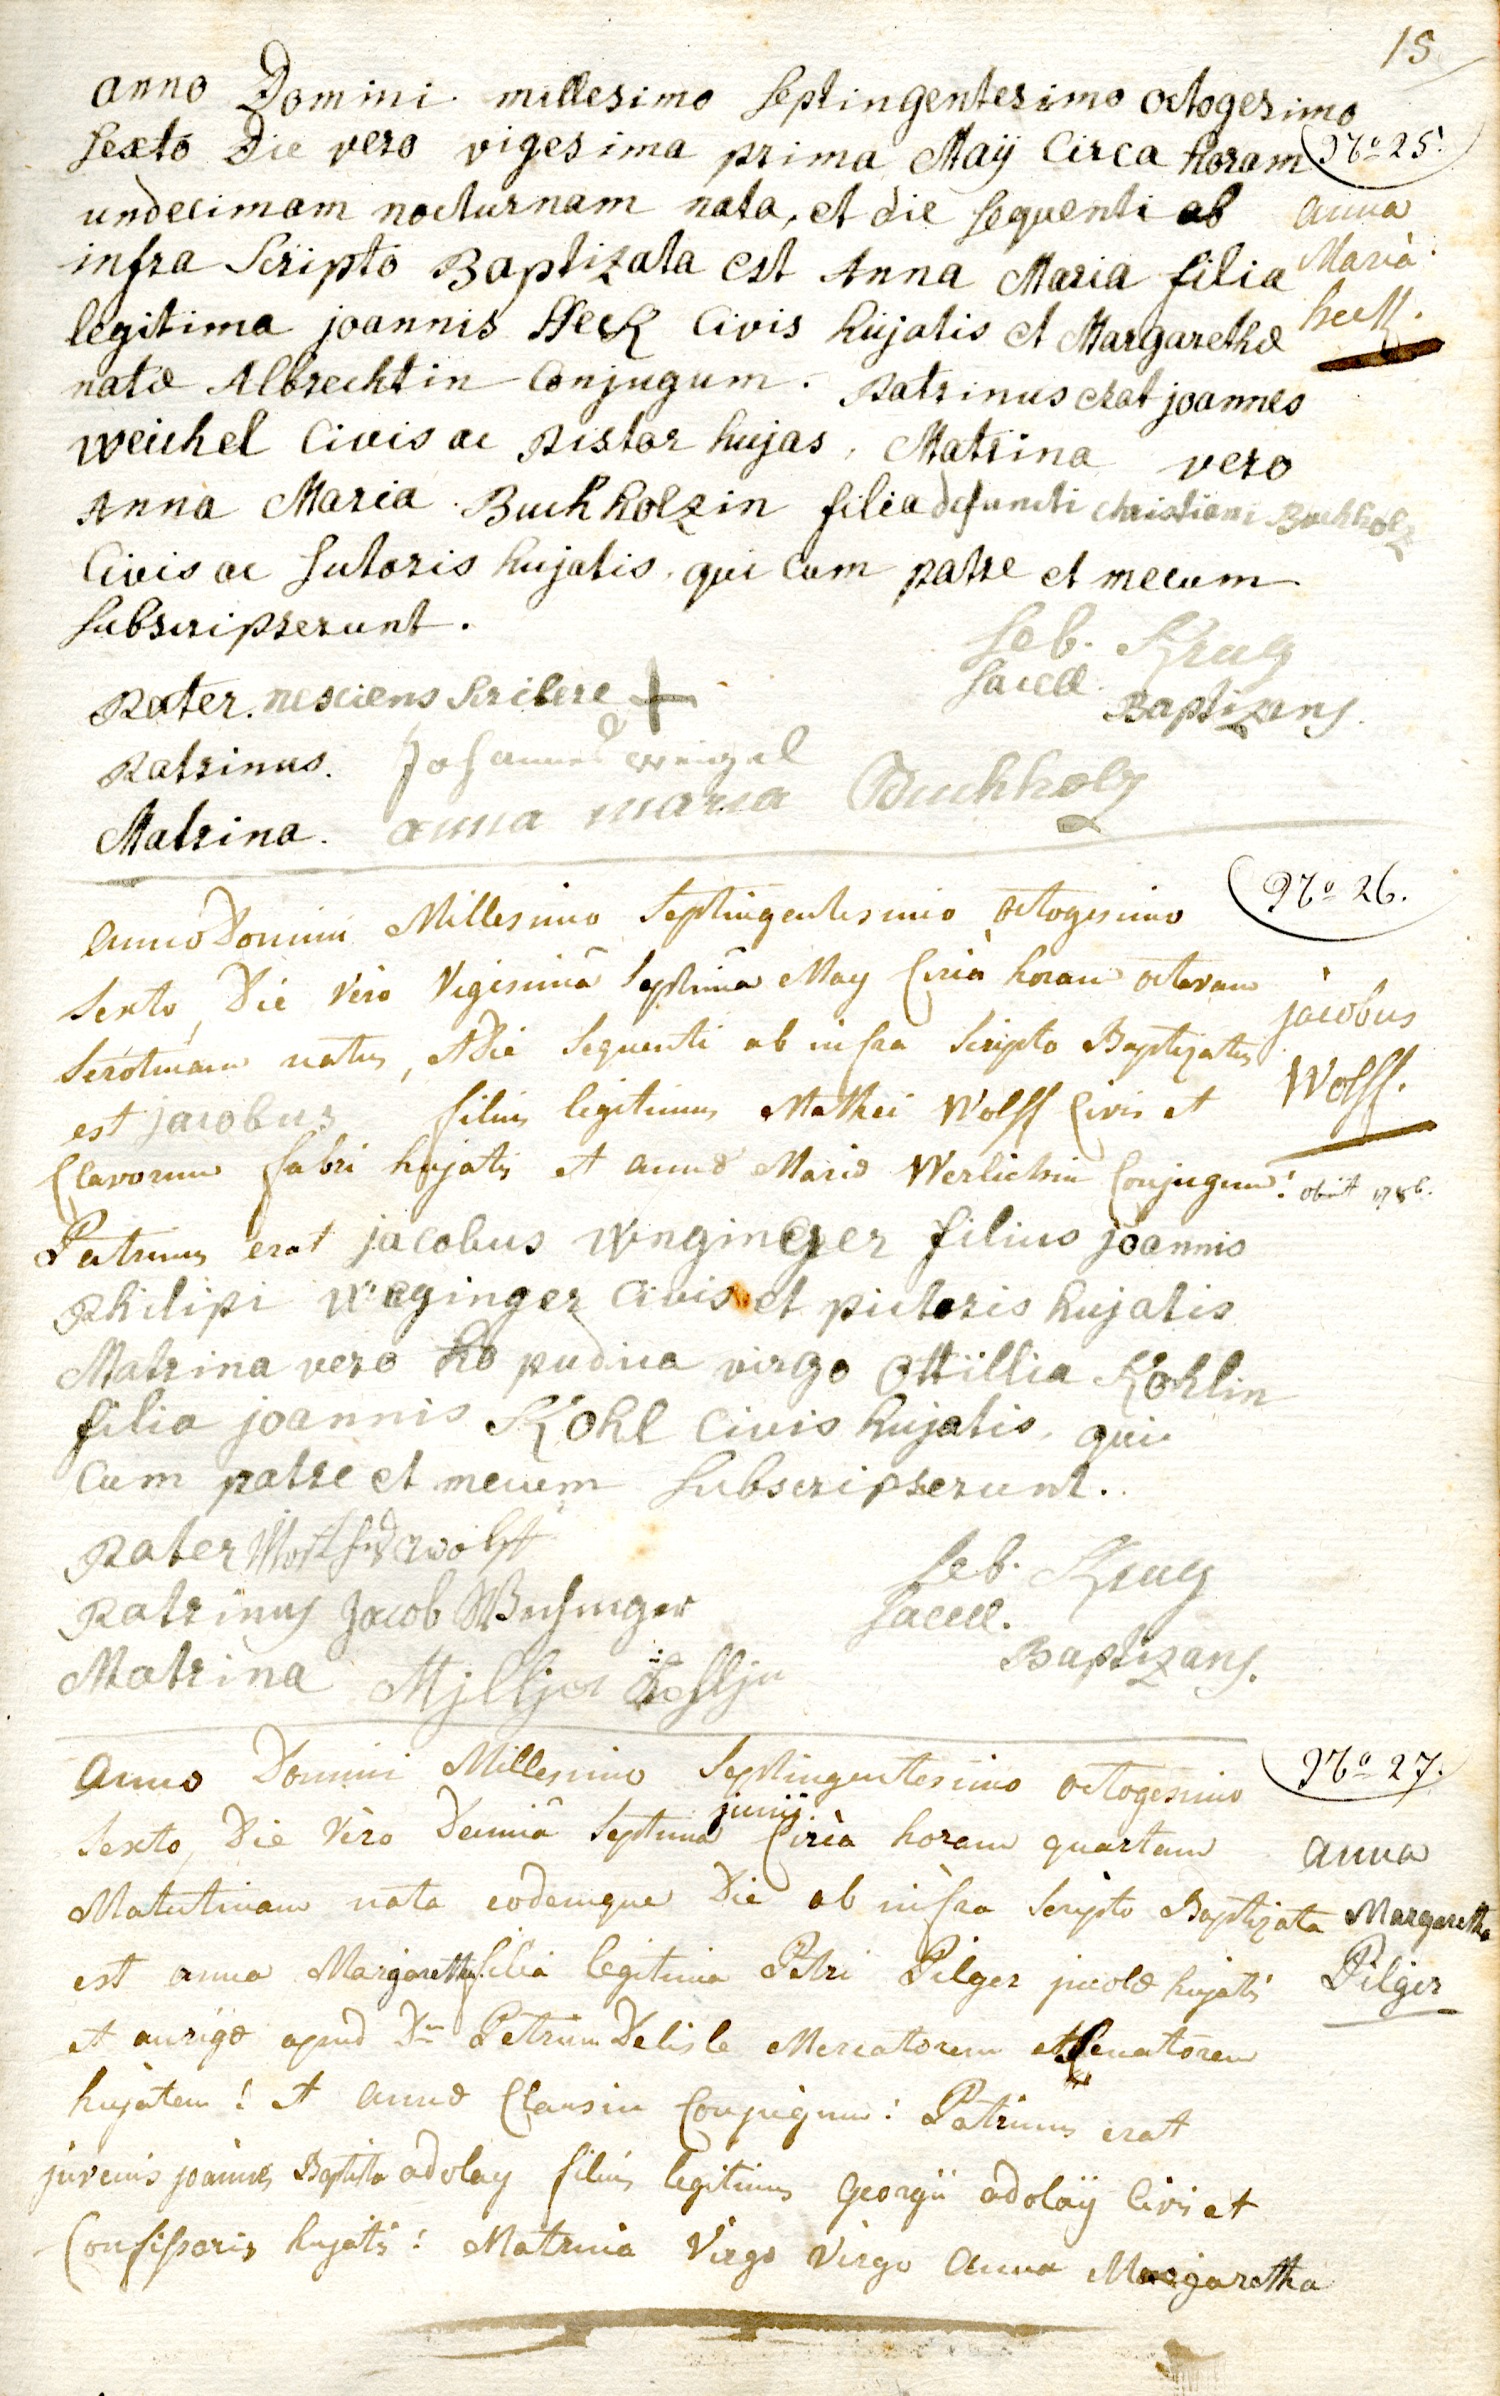 15
anno Domini millesimo septingentesimo octogesimo
sexto Die vero vigesima prima Maÿ Circa horam
Nº 25.
undecimam nocturnam nata, et die sequenti ab
anna
infra Scripto Baptizata est Anna Maria filia
Maria
legitima joannis Heck Civis hujatis et Margarethæ
heck.
natæ Albrechtin Conjugum. Patrinus erat joannes
Weichel Civis ac Pistor hujas, Matrina vero
Anna Maria Buchholzin filia defuncti christiani Buchholz
Civis ac Sutoris hujatis, qui Cum patre et mecum
subscripserunt.
Seb. Krug
Sacell.
Baptizans.
Pater. nesciens scribere +
Patrinus. Johannes weigel
Matrina. anna maria Buchholz
Nº 26.
anno Domini Millesimo Septingentesimo octogesimo
sexto, Die vero Vigesimâ Septimâ May Circa horam octavam
jacobus
serotinam natus, et Die sequenti ab infra scripto Baptizatus
Wolff.
est jacobus filius legitimus Mathei Wolff Civis et
Clavorum fabri hujatis et annæ Mariæ Werlichin Conjugum:
obiit 1786.
Patrinus erat jacobus Wegingger filius joannis
Philipi Weginger Civis et pictoris hujatis
Matrina vero pudica virgo Ottillia Kohlin
filia joannis Kohl Civis hujatis, qui
Cum patre et mecum subscripserunt.
Pater wolff
Seb. Krug
Sacell.
Baptizans.
Patrinus Jacob
Matrina
Nº 27.
Anno Domini Millesimo Septingentesimo octogesimo
junij
sexto, Die vero Decimâ septima Circa horam quartam
anna
Matutinam nata eodemque Die ab infra scripto Baptizata
Margaretha
est anna Margaretha filia legitima Petri Pilger jncolæ hujatis
Pilger
et aurigæ apud Dn Petrum Delisle Mercatorem et Senatorem
hujatem: et annæ Clausin Conjugum: Patrinus erat
juvenis joannes Baptista adolay filius legitimus Georgii adolaÿ Civis et
Confissoris hujatis: Matrina Virgo Virgo Anna Margaretha